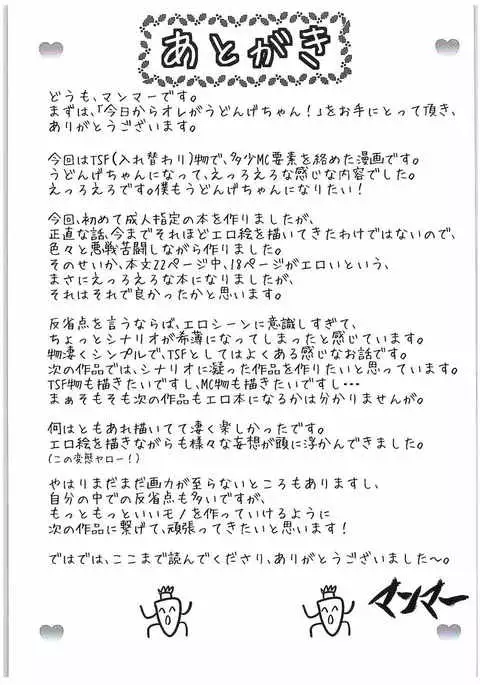 あとがき
どうも、マンマーです。
まずは、「今日からオレがうどんげちゃん!」をお手にとって頂き、
ありがとうございます。
今回はTSF(入れ替わり)物で、多少MC要素を絡めた漫画です。
うどんげちゃんになって、えっろえろな感じな内容でした。
えっろえろです。僕もうどんげちゃんになりたい!
今回、初めて成人指定の本を作りましたが、
正直な話、今までそれほどエロ絵を描いてきたわけではないので、
色々と悪戦苦闘しながら作りました。
そのせいか、本文22ページ中、18ページがエロいという、
まさにえっろえろな本になりましたが、
それはそれで良かったかと思います。
反省点を言うならば、エロシーンに意識しすぎて、
ちょっとシナリオが希薄になってしまったと感じています。
物凄くシンプルで、TSFとしてはよくある感じなお話です。
次の作品では、シナリオに凝った作品を作りたいと思っています。
TSF物も描きたいですし、MC物も描きたいですし…
まぁそもそも次の作品もエロ本になるかは分かりませんが。
何はともあれ描いてて凄く楽しかったです。
エロ絵を描きながらも様々な妄想が頭に浮かんできました。
(この変態ヤロー!)
やはりまだまだ画力が至らないところもありますし、
自分の中での反省点も多いですが、
もっともっといいモノを作っていけるように
次の作品に繋げて、頑張ってきたいと思います!
ではでは、ここまで読んでくださり、ありがとうございました〜。
マンマー